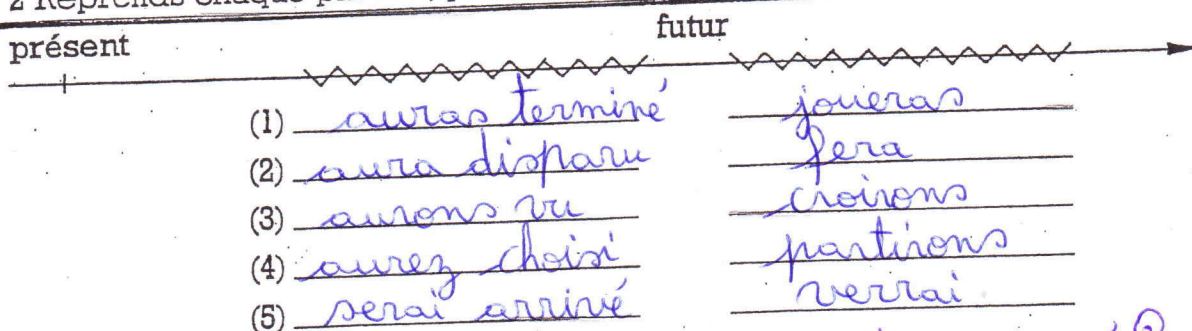 2 Reprends chaque
présent futur
(1) auras terminé joueras
(2) aura disparu fera
(3) aurons vu croirons
(4) aurez choisi partirons
(5) serai arrivé verrai